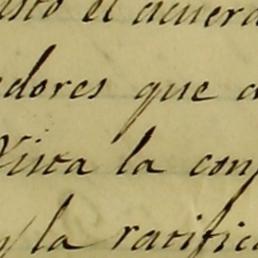 visto el acuerd
edores que a
Vista la conf
y la ratific